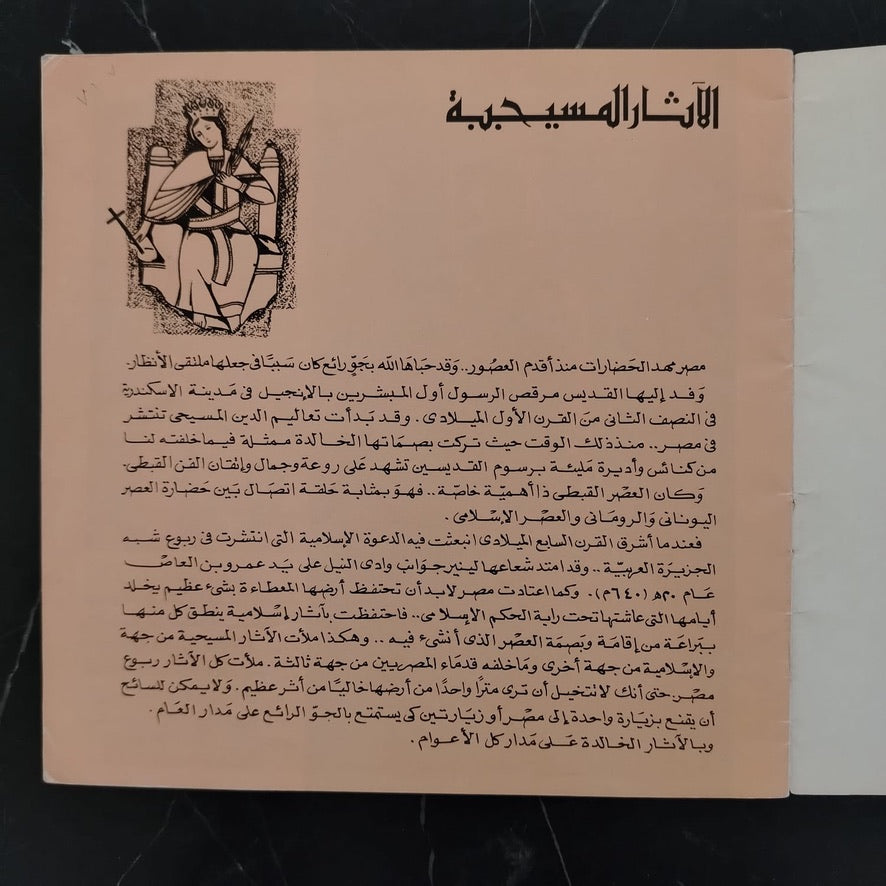 الآثار المسيحية
مصر مهد الحَضارات منذ أقدم العصُور.. وَقد حبَاهَا الله بجَوٍّ رائع كان سَببًا فى جعلها ملتقى الأنظار.
وَفد إليها القديس مرقص الرسول أول المبشرين بالإنجيل فى مَدينة الاسكندرة
فى النصف الثانى منَ القرن الأول الميلادى. وقد بَدأت تعاليم الدين المسيحى تنتشر
فى مصر.. منذ ذلك الوقت حيث تركت بصمَاتها الخالدة ممثلة فيما خلفته لنا
من كنائس وأديرة مَليئة برسوم القديسين تشهد عَلى روعة وجمال وإتقان الفن القبطى.
وَكان العصْر القبطى ذا أهميّة خاصّة.. فهوَ بمثابة حَلقة اتصال بَين حَضارة العصر
اليونانى وَالرومَانى والعصْر الإسْلامى.
فعندما أشرق القرن السابع الميلادى انبعثت فيه الدعوة الإسلامية التى انتشرت فى ربوع شبه
الجزيرَة العربيّة.. وقد امتد شعاعها لينير جوَانب وادى النيل على يَد عمرو بن العاصْ
عَام ٢٠هـ (٦٤٠م). وكما اعتادت مصر لابد أن تحتفظ أرضها المعطاءة بشىء عظيم يخلد
أيامها التى عاشتها تحت راية الحكم الإسلامى.. فاحتفظت بآثار إسْلامية ينطق كل منها
ببَراعَة من إقامَة وَبصَمة العصْر الذى أنشىء فيه.. وهكذا ملأت الآثار المسيحية من جهة
والإسْلامية من جهة أخرى وَمَا خلفه قدمَاء المصريين من جهة ثالثة. ملأت كل الآثار ربوع
مصْر. حتى أنك لا تتخيل أن ترى مترًا واحدًا من أرضها خاليًا من أثر عظيم. وَلا يمكن للسائح
أن يقنع بزيَارة واحدة إلى مصْر أو زيارتين كى يستمتع بالجوّ الرائع على مَدار العَام.
وبالآثار الخالدة عَلى مَدار كل الأعوام.